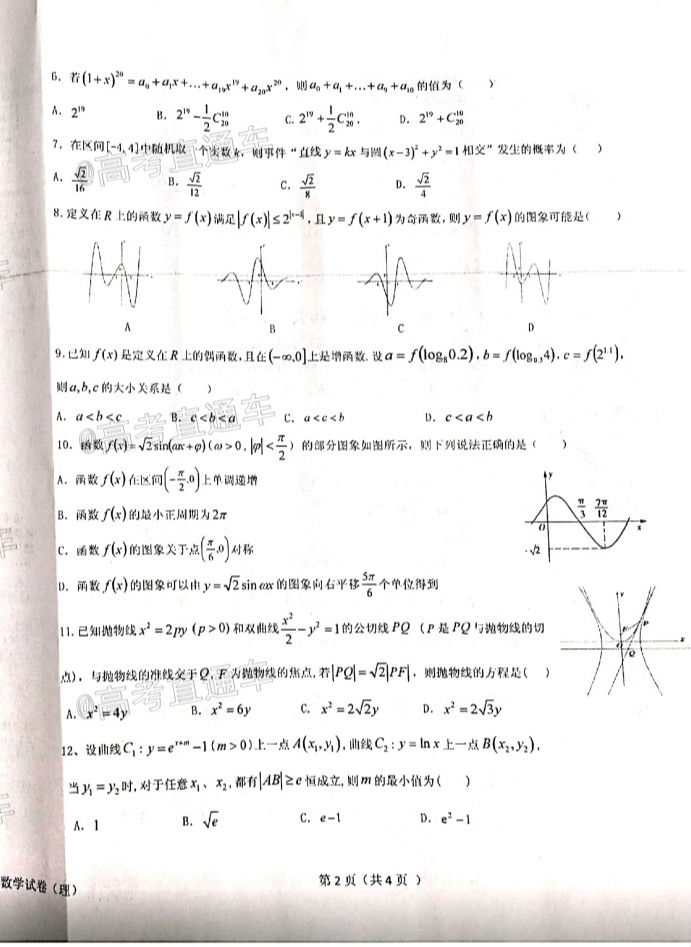 6. 若(1+x)²⁰ = a₀ + a₁x + ... + a₁₉x¹⁹ + a₂₀x²⁰，则 a₀ + a₁ + ... + a₉ + a₁₀ 的值为（ ）
A. 2¹⁹ B. 2¹⁹ - 1/2 C₂₀¹⁰ C. 2¹⁹ + 1/2 C₂₀¹⁰. D. 2¹⁹ + C₂₀¹⁰
7. 在区间[-4, 4]中随机取一个实数 k，则事件“直线 y = kx 与圆(x-3)² + y² = 1相交”发生的概率为（ ）
A. √2/16 B. √2/12 C. √2/8 D. √2/4
8. 定义在 R 上的函数 y = f(x) 满足 |f(x)| ≤ 2^|x-1|，且 y = f(x+1) 为奇函数，则 y = f(x) 的图象可能是（ ）
A B C D
9. 已知 f(x) 是定义在 R 上的偶函数，且在(-∞,0]上是增函数. 设 a = f(log₈0.2)，b = f(log₀.₃4)，c = f(2¹·¹)，
则 a,b,c 的大小关系是（ ）
A. a < b < c B. c < b < a C. a < c < b D. c < a < b
10. 函数 f(x) = √2 sin(ωx+φ) (ω > 0, |φ| < π/2) 的部分图象如图所示，则下列说法正确的是（ ）
A. 函数 f(x) 在区间(-π/2,0)上单调递增
B. 函数 f(x) 的最小正周期为 2π
C. 函数 f(x) 的图象关于点(π/6,0)对称
D. 函数 f(x) 的图象可以由 y = √2 sin ωx 的图象向右平移 5π/6 个单位得到
y
π/3 7π/12
O x
-√2
11. 已知抛物线 x² = 2py (p > 0) 和双曲线 x²/2 - y² = 1 的公切线 PQ （P 是 PQ 与抛物线的切
点），与抛物线的准线交于 Q, F 为抛物线的焦点，若|PQ| = √2|PF|，则抛物线的方程是（ ）
A. x² = 4y B. x² = 6y C. x² = 2√2y D. x² = 2√3y
y
F P
O x
Q
12、设曲线 C₁ : y = eˣ⁺ᵐ - 1 (m > 0) 上一点 A(x₁, y₁)，曲线 C₂ : y = ln x 上一点 B(x₂, y₂)，
当 y₁ = y₂ 时, 对于任意 x₁、x₂, 都有|AB| ≥ e 恒成立, 则 m 的最小值为（ ）
A. 1 B. √e C. e - 1 D. e² - 1
数学试卷（理）
第 2 页（共 4 页 ）
@高考直通车
@高考直通车
@高考直通车